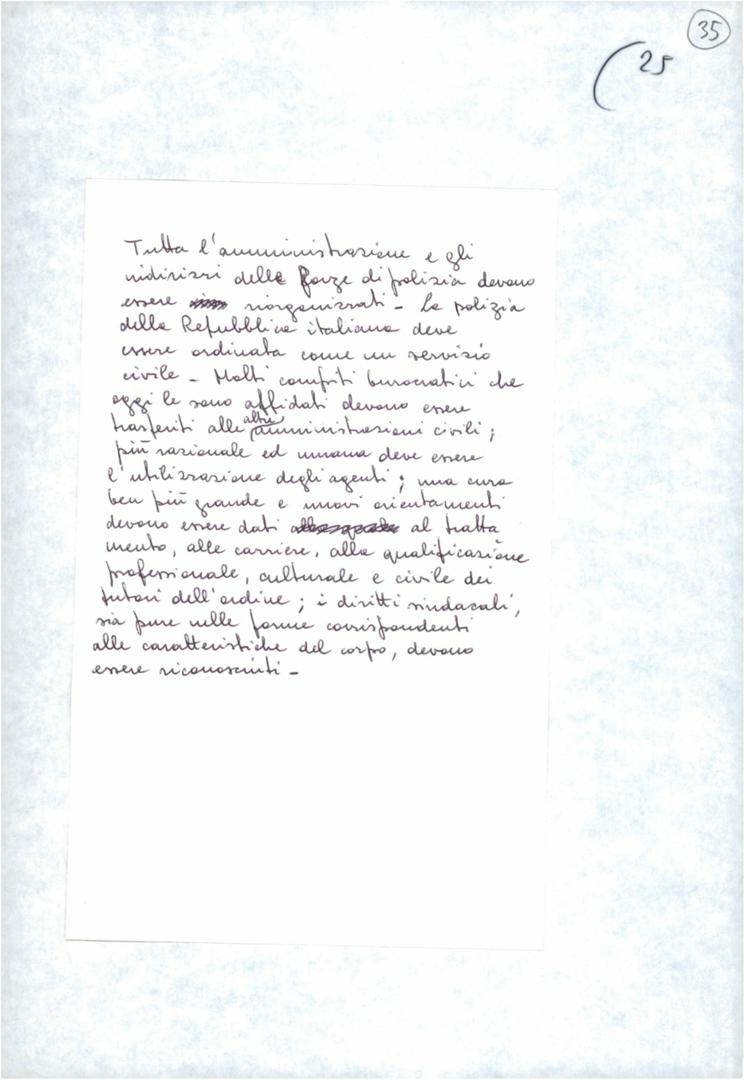 35
25
Tutta l'amministrazione e gli
indirizzi delle forze di polizia devono
essere riorganizzati - La polizia
della Repubblica italiana deve
essere ordinata come un servizio
civile - Molti compiti burocratici che
oggi le sono affidati devono essere
trasferiti alle altre amministrazioni civili;
più razionale ed umana deve essere
l'utilizzazione degli agenti; una cura
ben più grande e nuovi orientamenti
devono essere dati al tratta
mento, alle carriere, alla qualificazione
professionale, culturale e civile dei
tutori dell'ordine; i diritti sindacali,
sia pure nelle forme corrispondenti
alle caratteristiche del corpo, devono
essere riconosciuti -